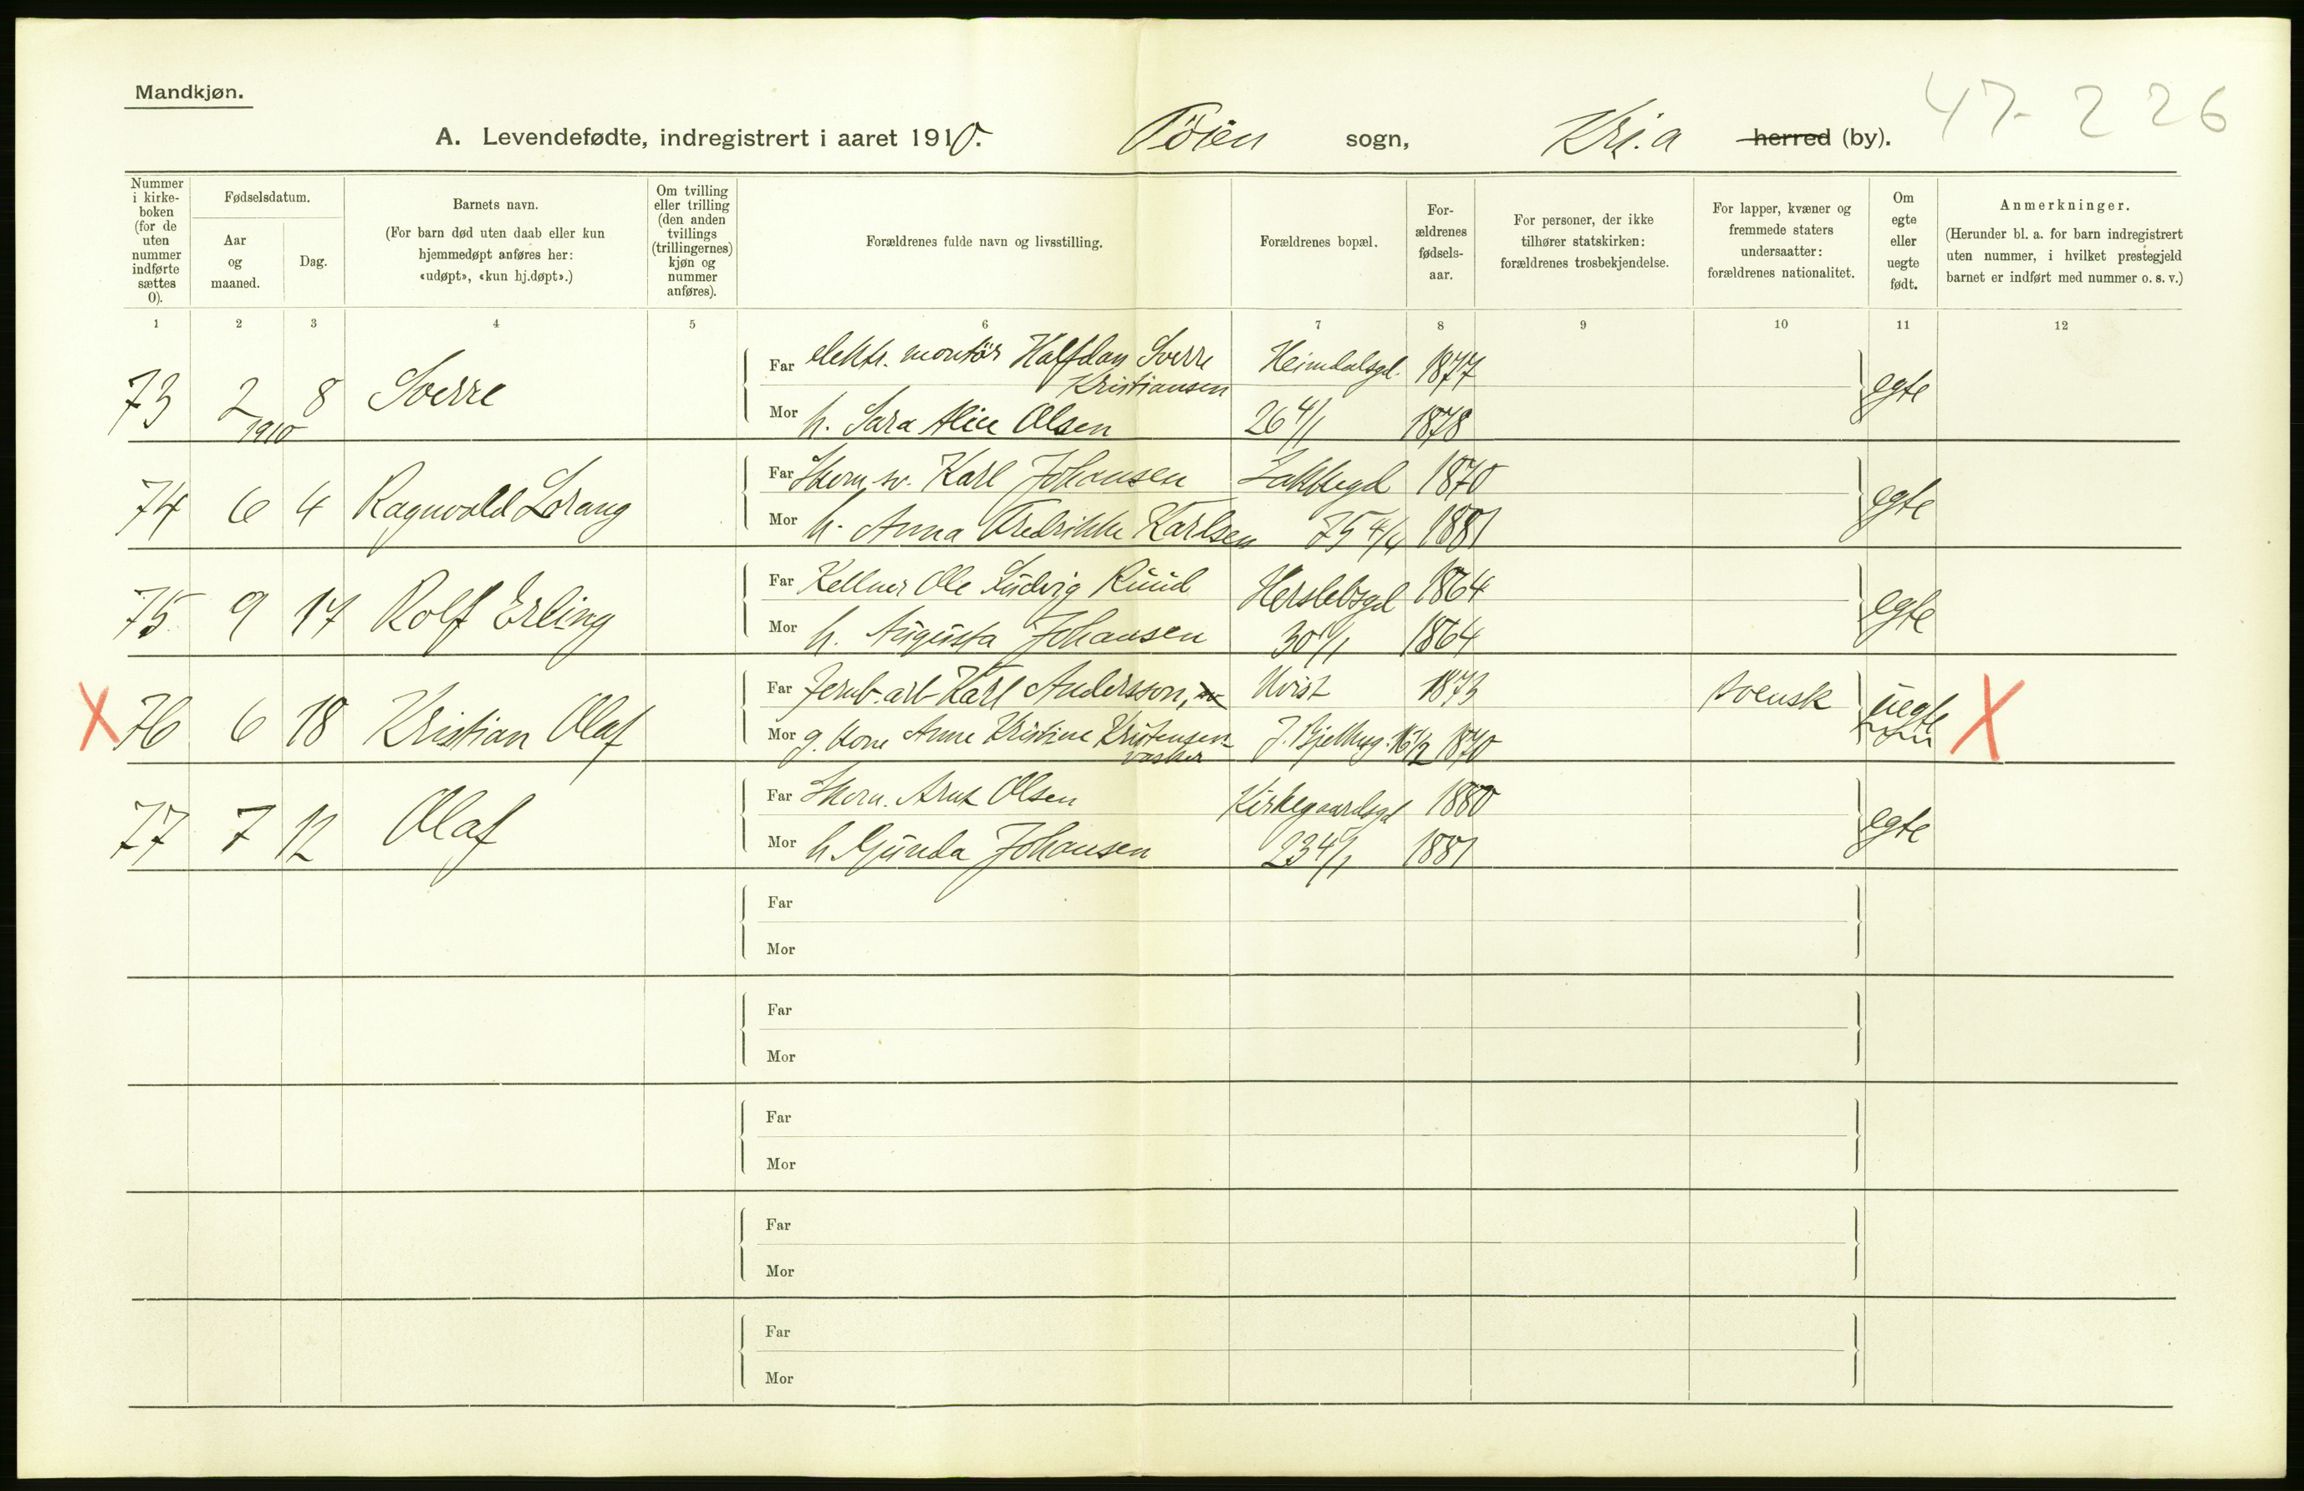 Mandkjøn.
47- 2 26
A. Levendefødte, indregistrert i aaret 1910. Töien sogn, Kri.a herred (by).
Nummer i kirke- boken (for de uten nummer indførte sættes 0).
Fødselsdatum.
Aar og maaned.
Dag.
Barnets navn.
(For barn død uten daab eller kun hjemmedøpt anføres her: «udøpt», «kun hj.døpt».)
Om tvilling eller trilling (den anden tvillings (trillingernes) kjøn og nummer anføres).
Forældrenes fulde navn og livsstilling.
Forældrenes bopæl.
For- ældrenes fødsels- aar.
For personer, der ikke tilhører statskirken: forældrenes trosbekjendelse.
For lapper, kvæner og fremmede staters undersaatter: forældrenes nationalitet.
Om egte eller uegte født.
Anmerkninger.
(Herunder bl. a. for barn indregistrert uten nummer, i hvilket prestegjeld barnet er indført med nummer o. s. v.)
1 2 3 4 5 6 7 8 9 10 11 12
73 2 1910 8 Sverre
Far elektr. montör Halfdan Sverre Kristiansen Heimdalsgd. 1877
Mor h. Sara Alice Olsen 26 4/1 1878 egte
74 6 4 Ragnvald Lorang
Far Karl Johansen 1870
Mor h. Anna Fredrikke Karlsen 75 4/4 1881 egte
75 9 17 Rolf Erling
Far Kellner Ole Ludvig Ruud Herslebsgd 1864
Mor h. Augusta Johansen 30 1/1 1864 egte
X 76 6 18 Kristian Olaf
Far Jernb. arb Karl Andersson, Kvist 1873 svensk
Mor g. kone Anne Kristine Kristensen vasker J. Bjelkesg. 1870 uegte X
77 7 12 Olaf
Far Skom. Arnt Olsen Kirkegaardsgd 1880
Mor h Gunda Johansen 23 4/1 1881 egte
Far
Mor
Far
Mor
Far
Mor
Far
Mor
Far
Mor